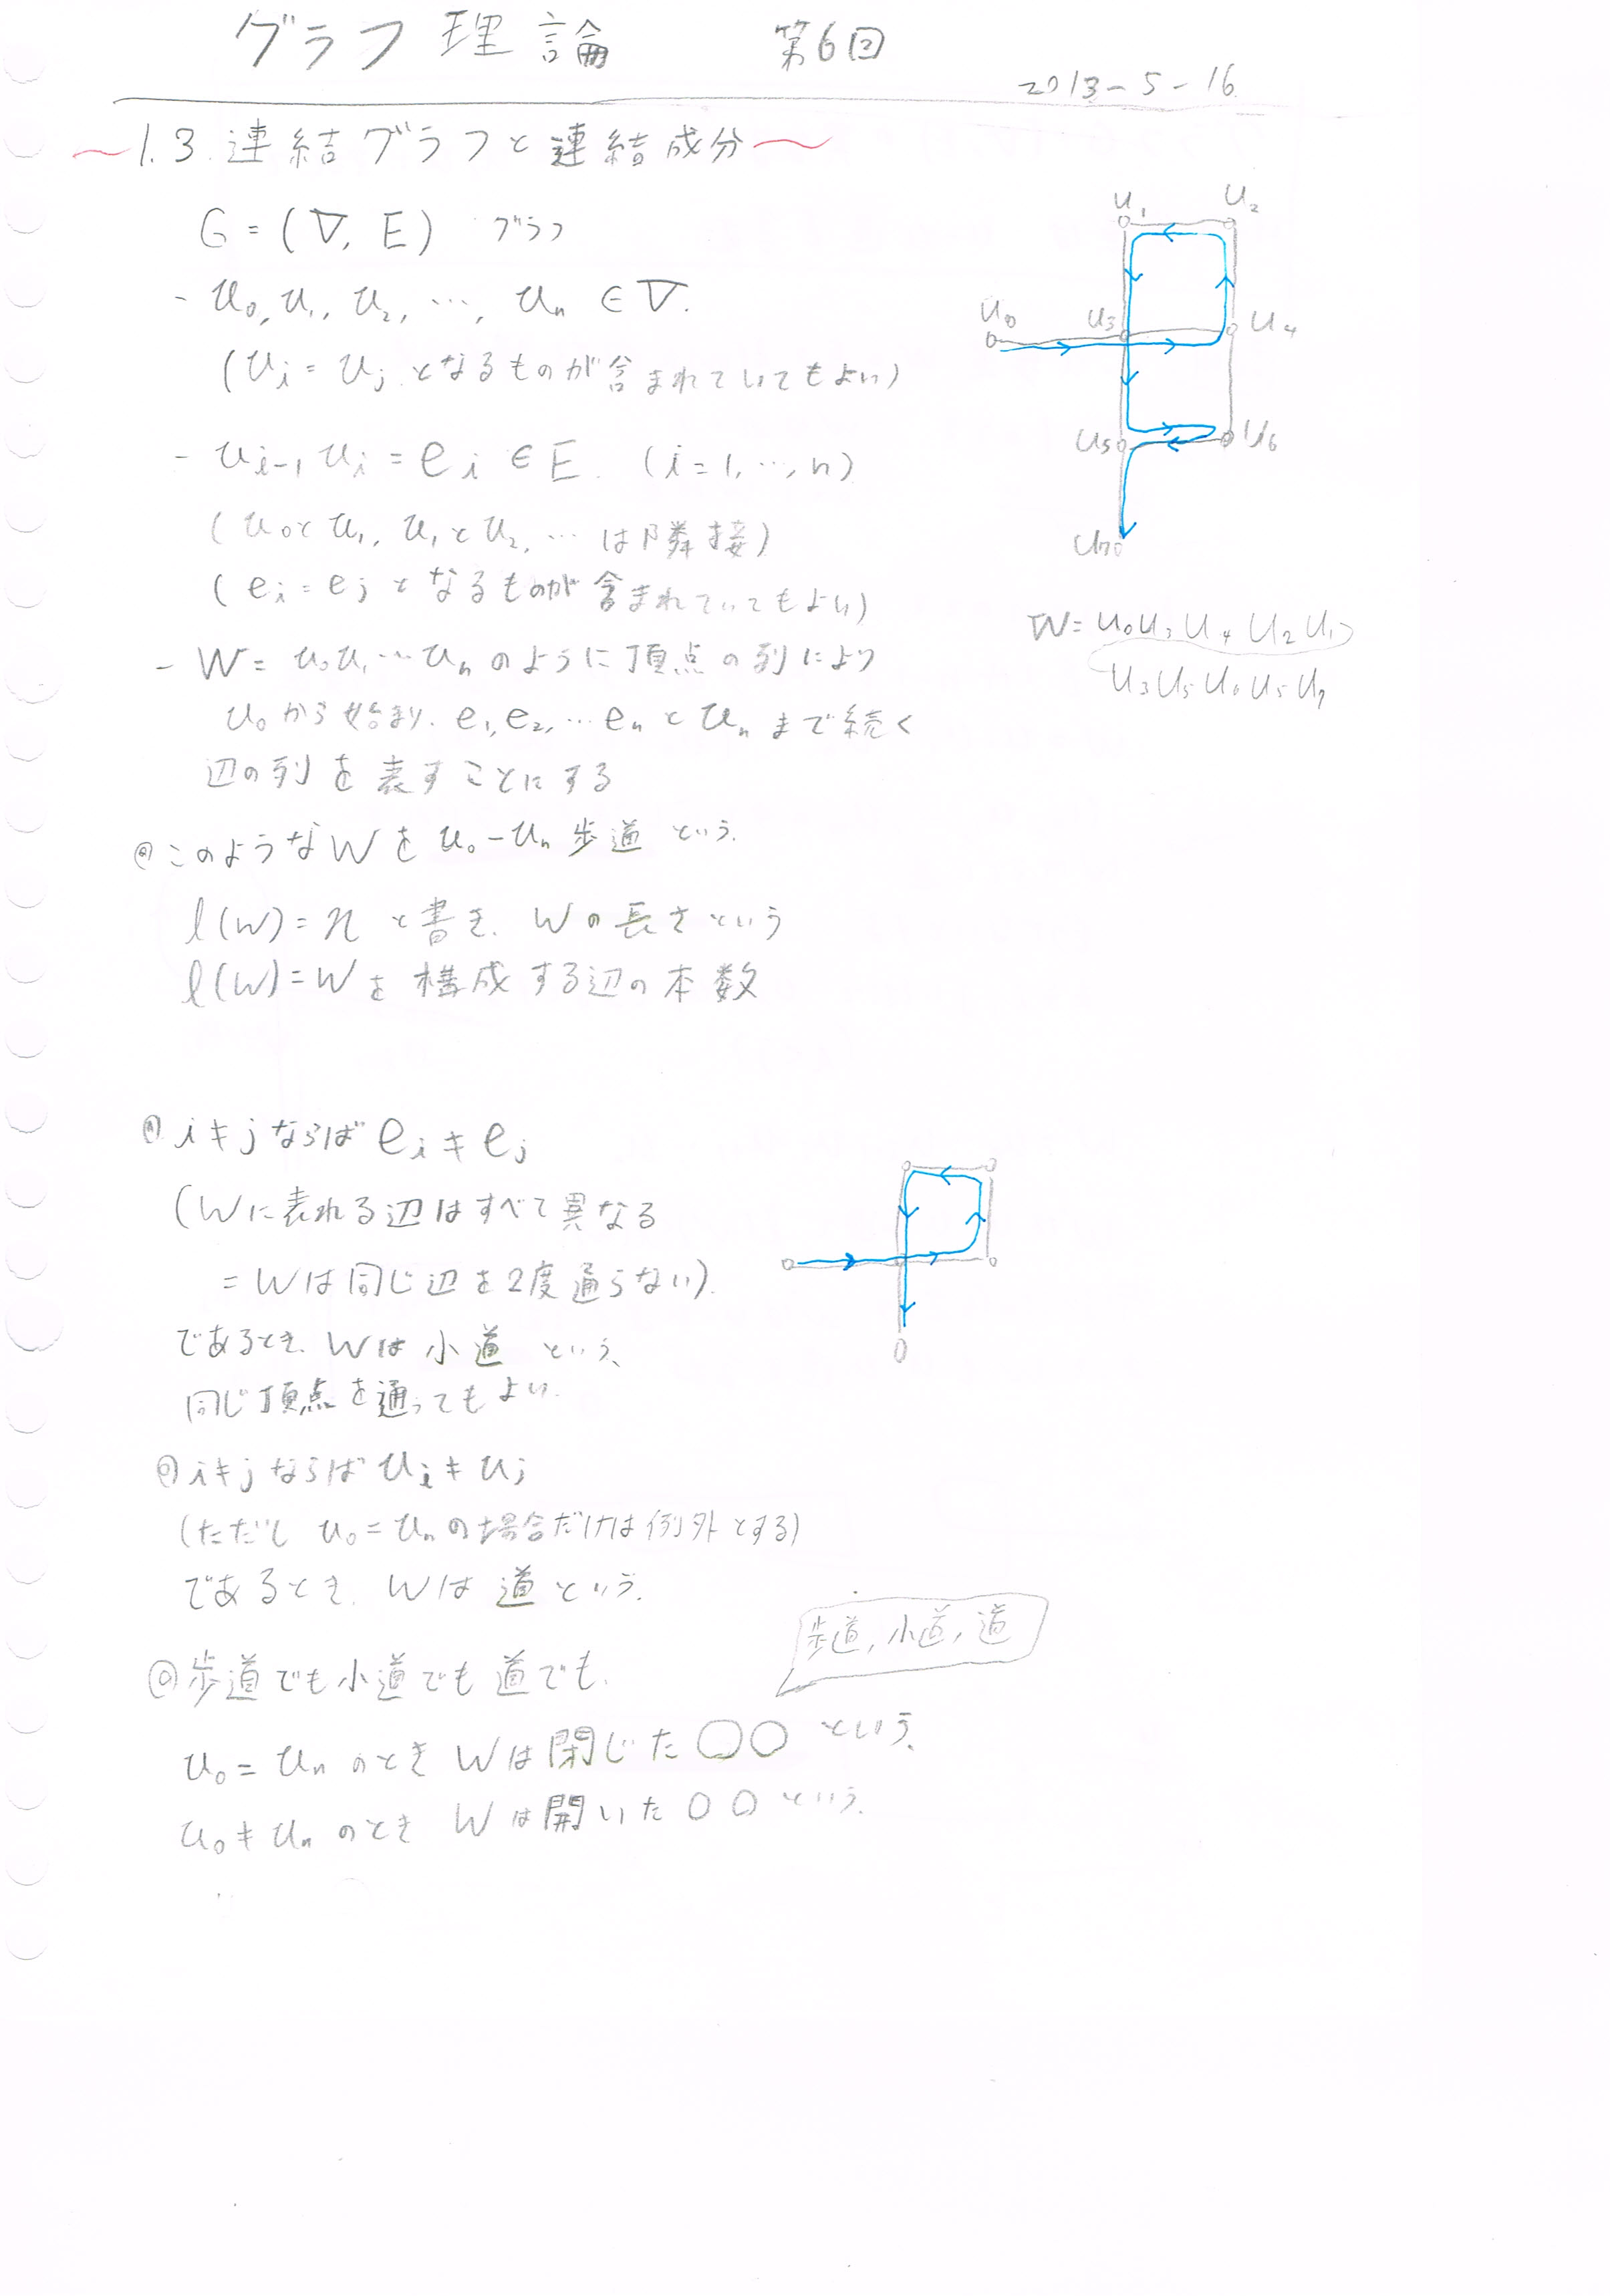 グラフ理論 第6回
2013-5-16
～1.3. 連結グラフと連結成分～
G=(V, E) グラフ
- u₀, u₁, u₂, …, uₙ ∈ V.
(uᵢ = uⱼ となるものが含まれていてもよい)
- uᵢ₋₁ uᵢ = eᵢ ∈ E. (i=1, …, n)
(u₀とu₁, u₁とu₂, … は隣接)
(eᵢ = eⱼ となるものが含まれていてもよい)
- W = u₀u₁…uₙ のように頂点の列により
u₀から始まり. e₁, e₂, …eₙ と uₙ まで続く
辺の列を表すことにする
◎このようなWを u₀-uₙ 歩道 という.
l(W)=n と書き. Wの長さという
l(W)=Wを構成する辺の本数
u₁ u₂
u₀ u₃ u₄
u₅ u₆
u₇
W= u₀u₃u₄u₂u₁
u₃u₅u₆u₅u₇
◎i≠jならば eᵢ≠eⱼ
(Wに表れる辺はすべて異なる
=Wは同じ辺を2度通らない).
であるとき. Wは 小道 という、
同じ頂点を通ってもよい.
◎i≠jならば uᵢ≠uⱼ
(ただし u₀=uₙの場合だけは例外とする)
であるとき. Wは 道 という.
歩道, 小道, 道
◎歩道でも小道でも道でも.
u₀=uₙ のとき Wは閉じた〇〇 という、
u₀≠uₙ のとき Wは開いた〇〇という.